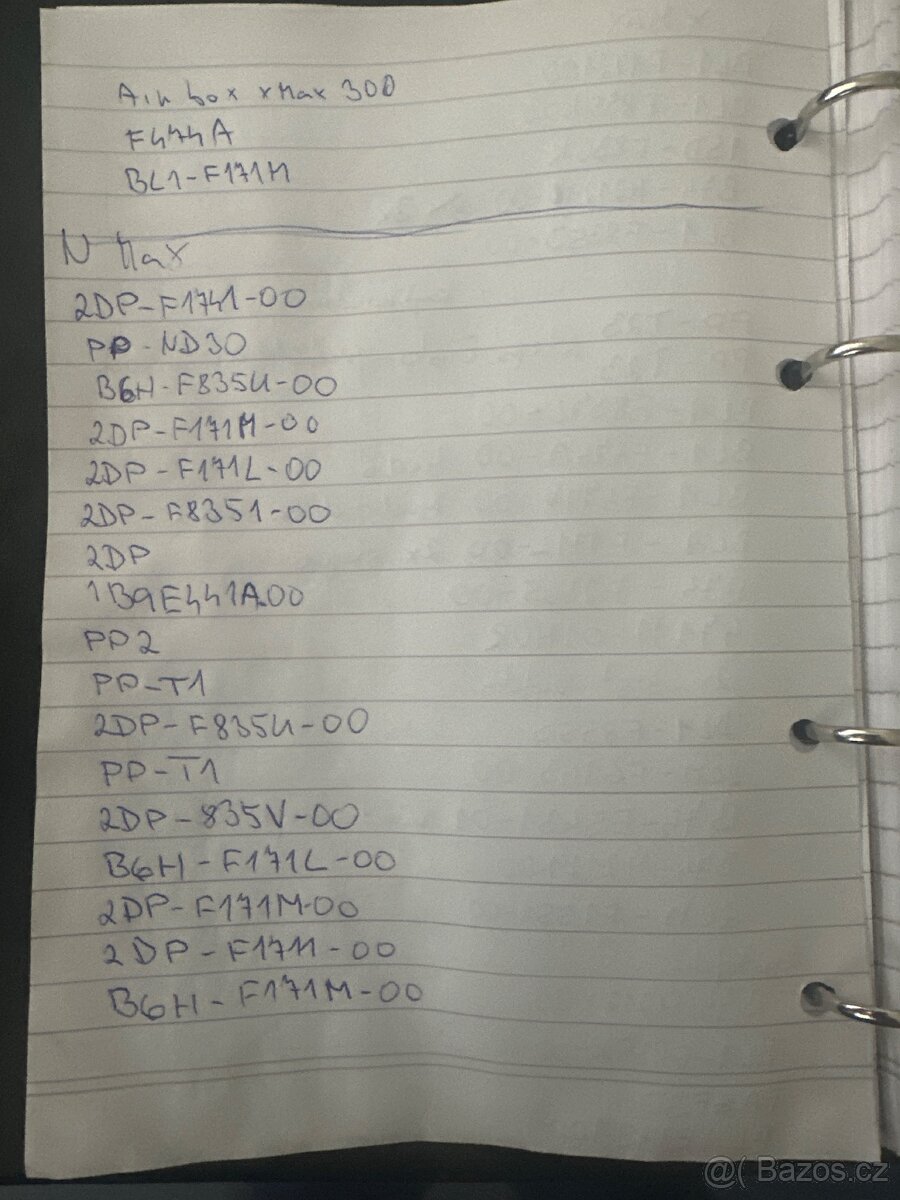 Air box xMax 300
F474A
BL1-F171M
N Max
2DP-F1741-00
PP-ND30
B6H-F835U-00
2DP-F171M-00
2DP-F171L-00
2DP-F8351-00
2DP
1B9E441A00
PP2
PP-T1
2DP-F835U-00
PP-T1
2DP-835V-00
B6H-F171L-00
2DP-F171M-00
2DP-F1711-00
B6H-F171M-00
@( Bazos.cz